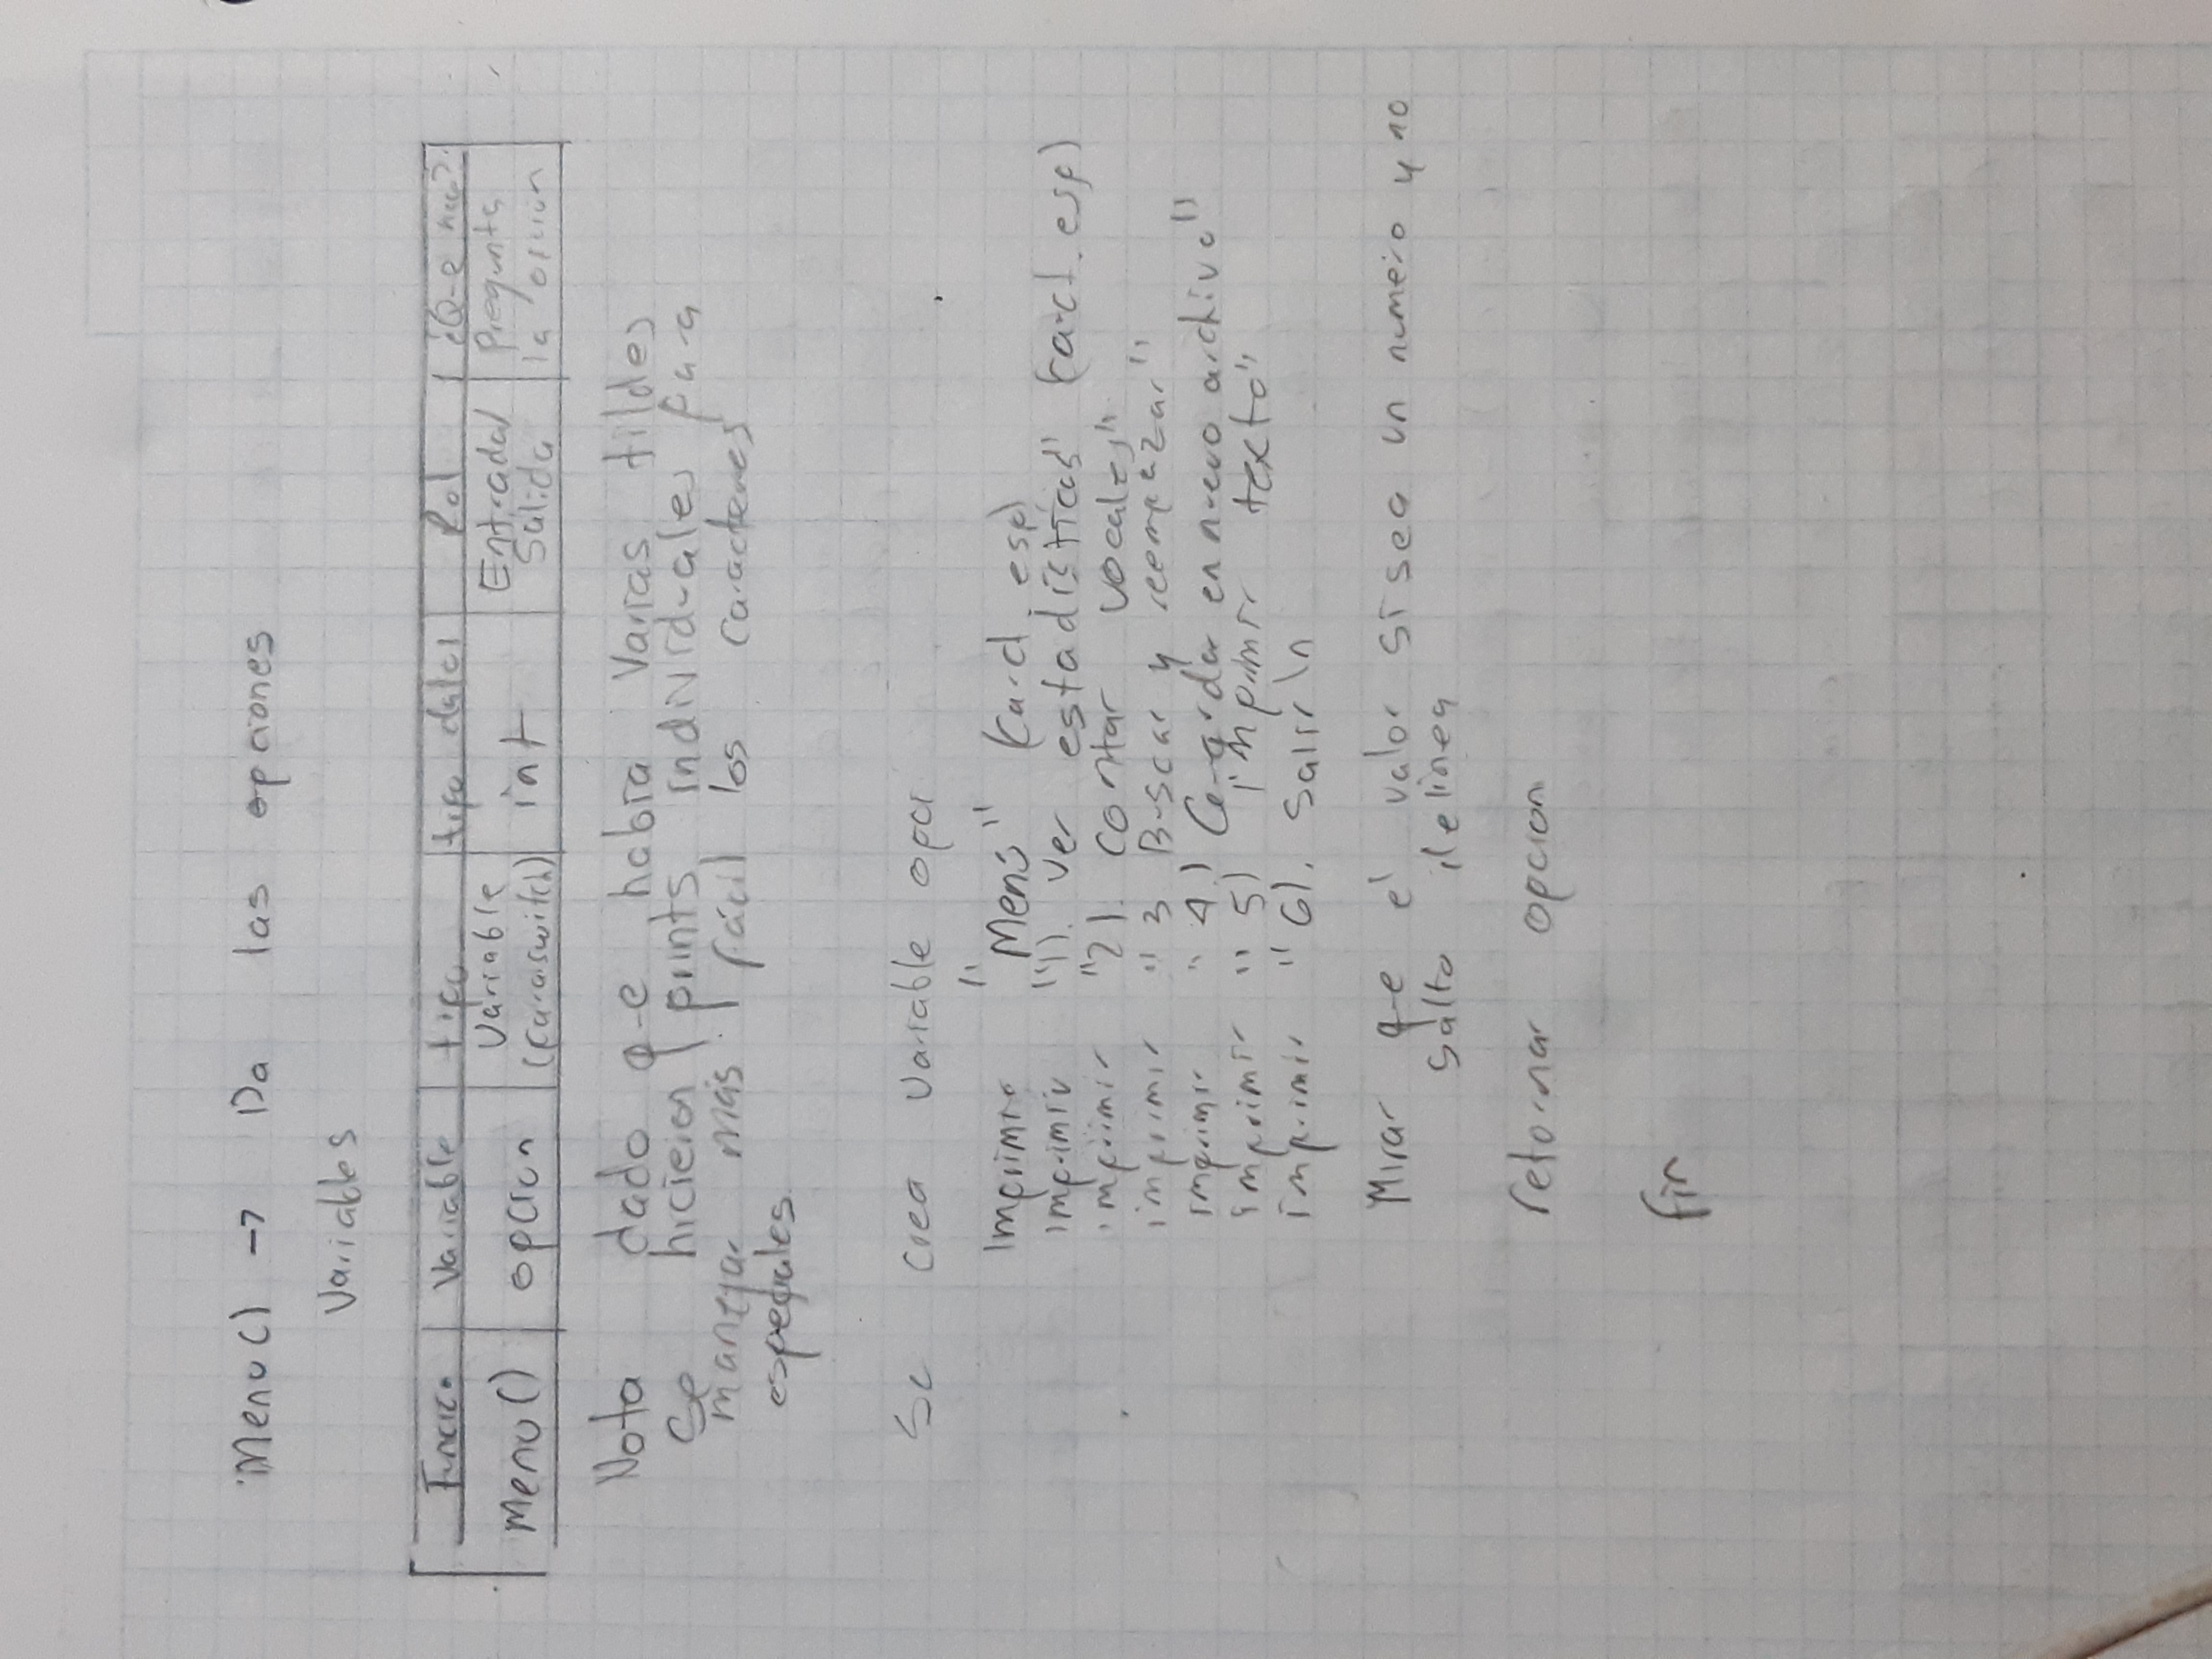 Menu() → Da las opciones
Variables
Función Variable tipo tipo datos Rol ¿Que hace?
Menu() opcion Variable (para switch) int Entrada/ Salida Pregunta la opcion
Nota dado que habia varias tildes
se hicieron prints individuales para
manejar más fácil los caracteres
especiales
Se crea variable opci
Imprimir "Menú" (caract. esp)
imprimir "1). Ver estadísticas" (caract. esp)
imprimir "2). contar vocales"
imprimir "3 Buscar y reempazar"
imprimir "4.) Guardar en nuevo archivo"
imprimir "5) imprimir texto"
imprimir "6). Salir \n
Mirar que el valor si sea un numero y no
salto de linea
retornar opcion
fin